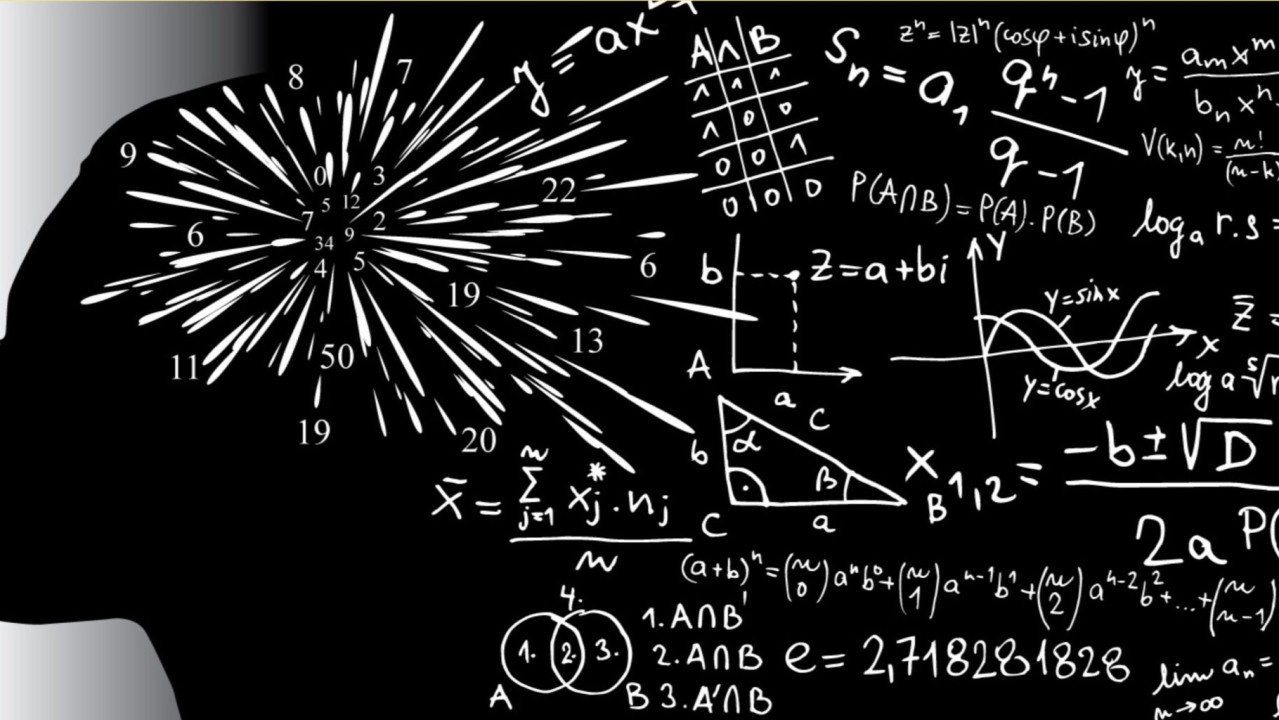 8
7
9
0
3
5
12
22
7
2
6
34
9
6
4
5
19
13
11
50
19
20
A ∧ B
1 1 1
1 0 0
0 0 1
0 0 0
Sₙ = a₁ (qⁿ-1)/(q-1)
zⁿ = |z|ⁿ (cosφ + i sinφ)ⁿ
y = aₘxᵐ / bₙxⁿ
V(k,n) = n!/(n-k
P(A∩B) = P(A).P(B)
logₐ r.s =
b
Z = a+bi
A
a
Y
y=sinx
X
y=cosx
z̄ =
log a ⁵√
C
b
α
β
C
a
B
X₁,₂ = -b ± √D / 2a
P(
x̄ = Σ xⱼ*.nⱼ / n
j=1
n
(a+b)ⁿ = (n 0) aⁿb⁰ + (n 1) aⁿ⁻¹b¹ + (n 2) aⁿ⁻²b² + ... + (n n-1)
4.
1. 2. 3.
A
B
1. A∩B'
2. A∩B
3. A'∩B
e = 2,718281828
lim aₙ =
n→∞